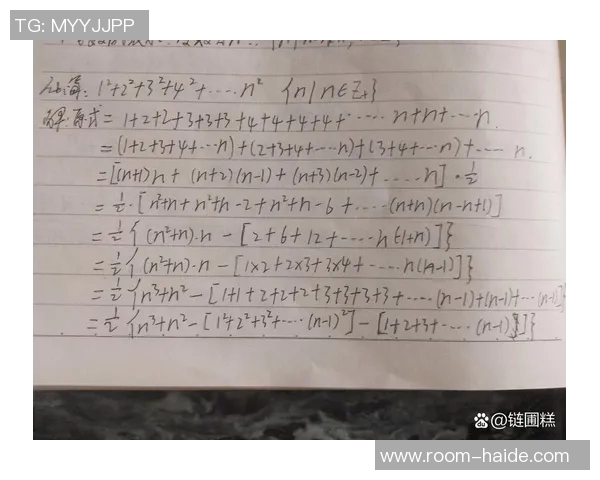 TG: MYYJJPP
计算: 1²+2²+3²+4²+····n² {n|n∈Z₊}
解:原式= 1+2+2+3+3+3+4+4+4+4+·····n+n+····n.
=(1+2+3+4+···n)+(2+3+4+···n)+(3+4+···n)+···· n.
=[(n+1)n+(n+2)(n-1)+(n+3)(n-2)+·····n]·½
=½·[n²+n+n²+n-2+n²+n-6+····(n+n)(n-n+1)]
=½{(n²+n)·n-[2+6+12+·····n(1+n)]}
=½{(n²+n)·n-[1×2+2×3+3×4+·····n(n-1)]}
=½{n³+n²-[1+1+2+2+2+2+3+3+3+3+····(n-1)+(n-1)+···(n-1)]}
=½{n³+n²-[1²+2²+3²+····(n-1)²]-[1+2+3+····(n-1)]}
@链圃糕
www.room-haide.com